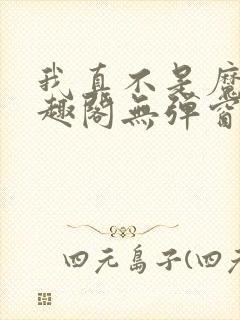 我真不是魔
趣閣無彈窗
四元島子(四元